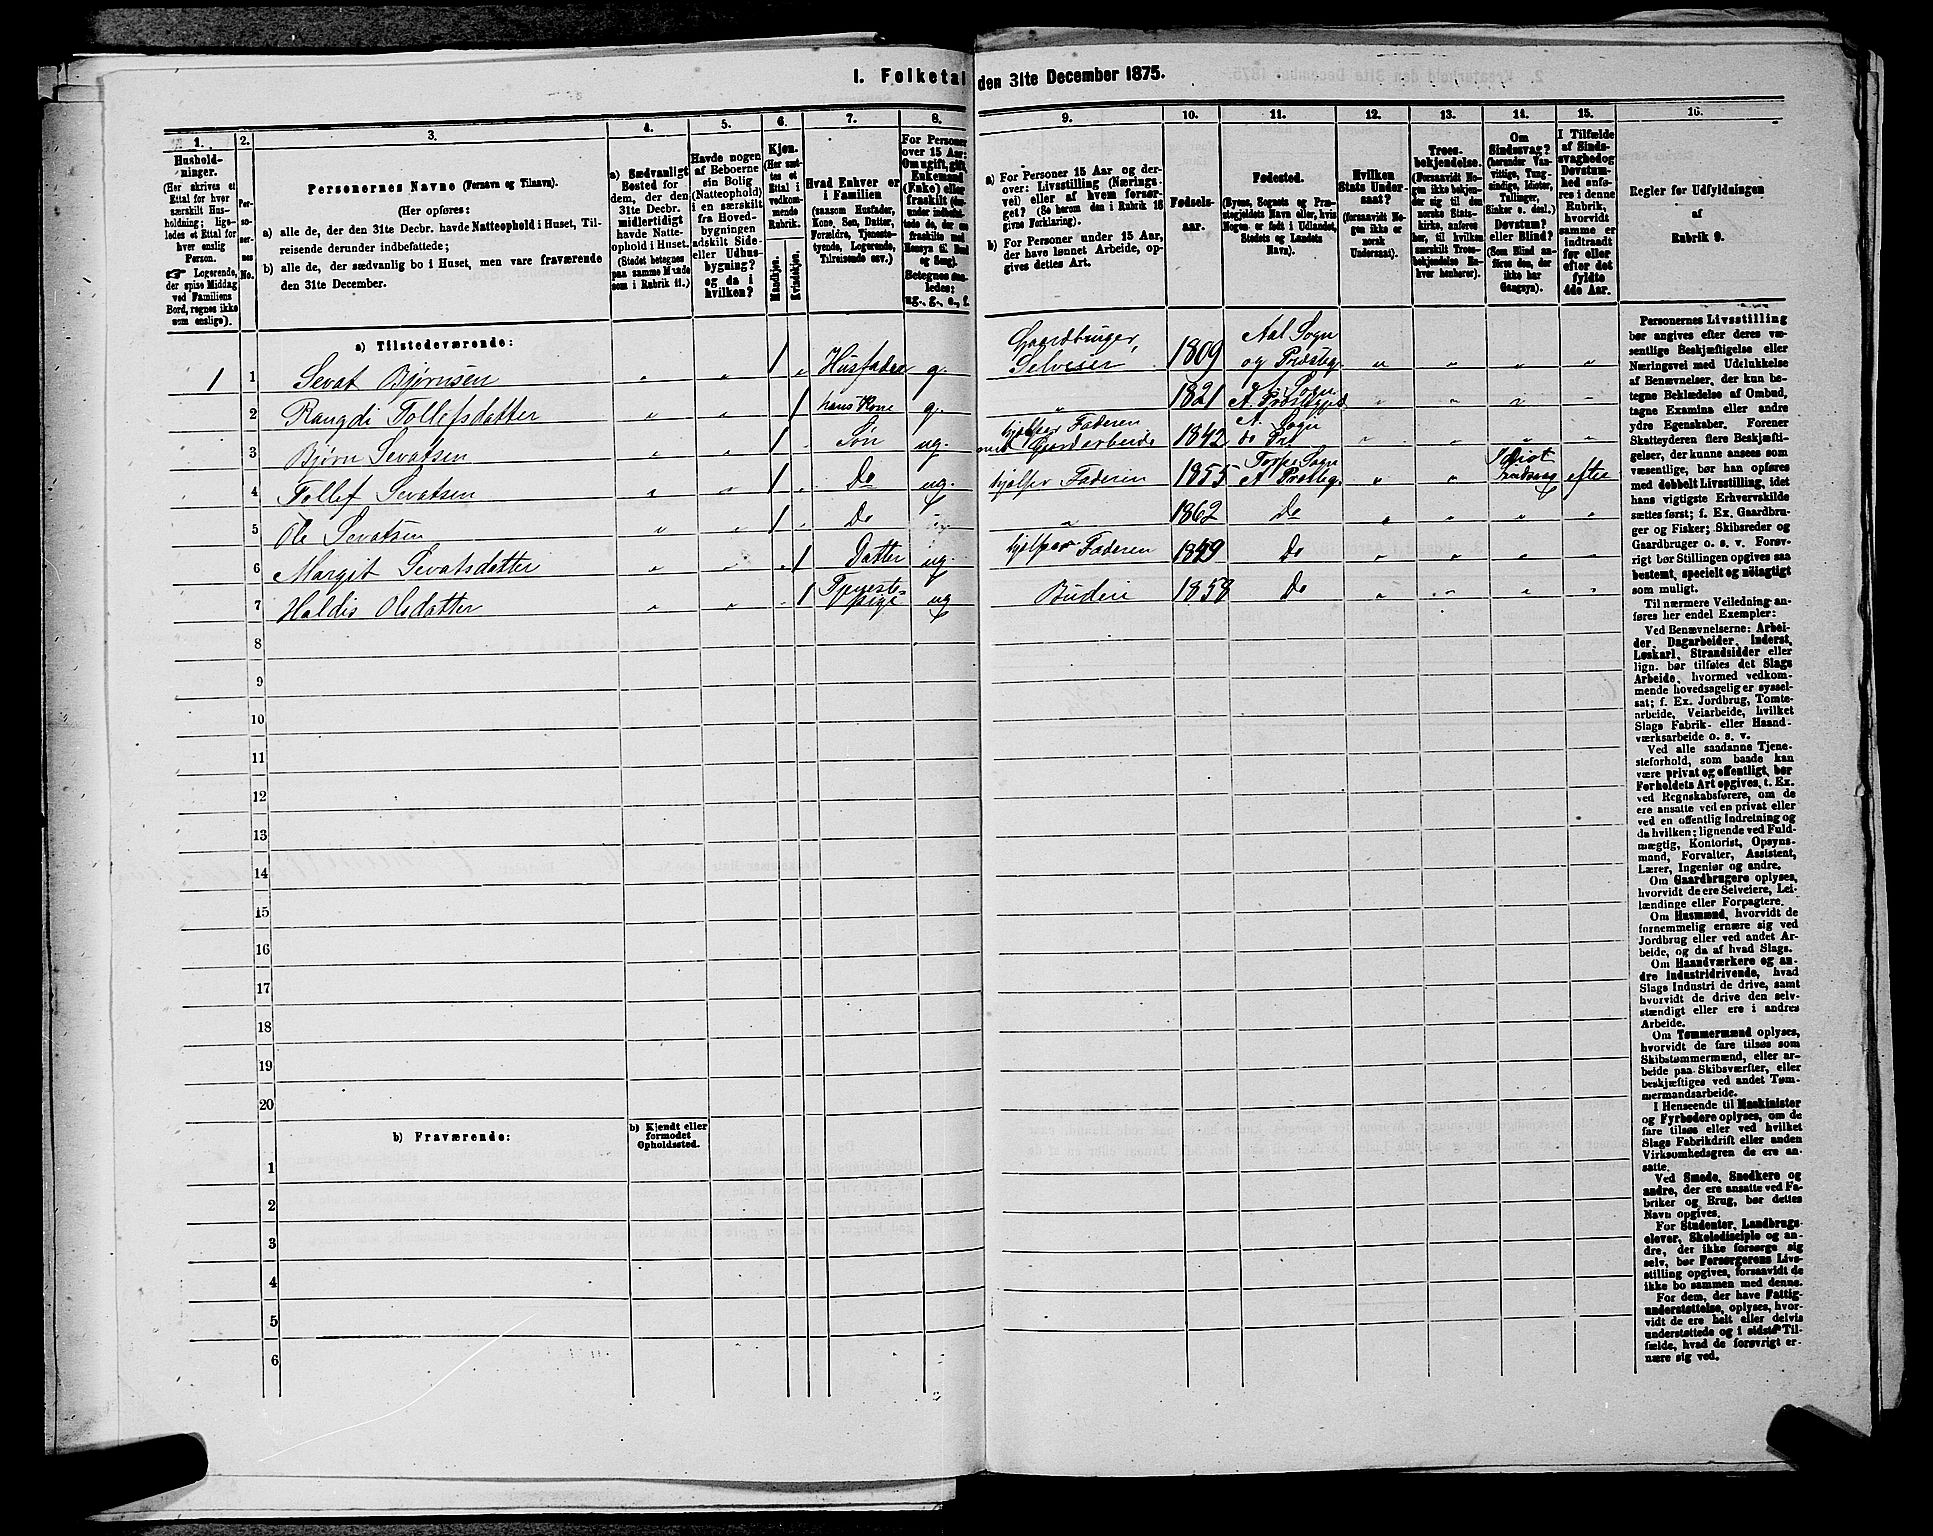 1. Folketal den 31te December 1875.
1. 2. 3. 4. 5. 6. 7. 8. 9. 10. 11. 12. 13. 14. 15. 16.
Hushold-
ninger.
(Her skrives et
Ettal for hver
særskilt Hus-
holdning; lige-
ledes et Ettal for
hver enslig
Person.
☞ Logerende,
der spise Middag
ved Familiens
Bord, regnes ikke
som enslige).
Per-
so-
ner-
nes
No.
Personernes Navne (Fornavn og Tilnavn).
(Her opføres:
a) alle de, der den 31te Decbr. havde Natteophold i Huset, Til-
reisende derunder indbefattede;
b) alle de, der sædvanlig bo i Huset, men vare fraværende
den 31te December.
a) Sædvanligt
Bosted for
dem, der den
31te Decbr.
midlertidigt
havde Natte-
ophold i Huset.
(Stedet betegnes
paa samme Maade
som i Rubrik 11.)
Havde nogen
af Beboerne
sin Bolig
(Natteophold)
i en særskilt
fra Hoved-
bygningen
adskilt Side-
eller Udhus-
bygning?
og da i
hvilken?
Kjøn.
(Her sæt-
tes et
Ettal i
vedkom-
mende
Rubrik.
Mandkjøn.
Kvindekjøn.
Hvad Enhver er
i Familien
(saasom Husfader,
Kone, Søn, Datter,
Forældre, Tjeneste-
tyende, Logerende,
Tilreisende osv.)
For Personer
over 15 Aar:
Om ugift, gift,
Enkemand
(Enke) eller
fraskilt
Betegnes saa-
ledes:
ug., g., e., f.
a) For Personer 15 Aar og der-
over: Livsstilling (Nærings-
vei) eller af hvem forsør-
get? (Se herom den i Rubrik 16
givne Forklaring).
b) For Personer under 15 Aar,
der have lønnet Arbeide, op-
gives dettes Art.
Fødsels-
aar.
Fødested.
(Byens, Sognets og Præ-
stegjeldets Navn eller, hvis
Nogen er født i Udlandet,
Stedets og Landets
Navn).
Hvilken
Stats Under-
saat?
(forsaavidt No-
gen ikke er
norsk
Undersaat).
Troes-
bekjendelse.
(Forsaavidt No-
gen ikke bekjen-
der sig til den
norske Stats-
kirke, anføres
her, til hvilken
særskilt Troes-
bekjendelse En-
hver henhører).
Om
Sindssvag?
(herunder Van-
vittige, Tung-
sindige, Idioter,
Tullinger,
Sinker o. desl.)
Døvstum?
eller Blind?
(Som Blind an-
føres den, der
ikke har
Gangsyn).
I Tilfælde
af Sinds-
svaghed og
Døvstum-
hed anfø-
res i denne
Rubrik,
hvorvidt
samme er
indtraadt
før eller
efter det
fyldte
4de Aar.
Regler for Udfyldningen
af
Rubrik 9.
a) Tilstedeværende:
1 1 Sevat Bjørnsen " " 1 " Husfader g. Gaardbruger, Selveier 1809 Aal Sogn og Præsteg. " " " "
2 Rangdi Tollefsdatter " " 1 hans Kone g. " 1821 A. Sogn A. Præstegjeld " " " "
3 Bjørn Sevatsen " " 1 " Søn ug. hjelper Faderen med Gaardarbeide 1842 A. Sogn do Pre " " " "
4 Tollef Sevatsen " " 1 " Do ug. hjelper Faderen 1855 Torpe Sogn A Præsteg. " " Idiot Sindssvag efter
5 Ole Sevatsen " " 1 " Do " 1862 Do " " " "
6 Margit Sevatsdatter " " " 1 Datter ug hjelper Faderen 1849 Do " " " "
7 Haldis Olsdatter " " " 1 Tjeneste- pige ug Budeie 1858 Do " " " "
8
9
10
11
12
13
14
15
16
17
18
19
20
b) Fraværende:
b) Kjendt eller
formodet
Opholdssted.
1
2
3
4
5
6
Personernes Livsstilling
bør angives efter deres væ-
sentlige Beskjæftigelse eller
Næringsvei med Udelukkelse
af Benævnelser, der kun be-
tegne Beklædelse af Ombud,
tagne Examina eller andre
ydre Egenskaber. Forener
Skatteyderen flere Beskjæfti-
gelser, der kunne ansees som
væsentlige, bør han opføres
med dobbelt Livsstilling, idet
hans vigtigste Erhvervskilde
sættes først; f. Ex. Gaardbru-
ger og Fisker; Skibsreder og
Gaardbruger o. s. v. Forøv-
rigt bør Stillingen opgives saa
bestemt, specielt og nøiagtigt
som muligt.
Til nærmere Veiledning an-
føres her endel Exempler:
Ved Benævnelserne: Arbei-
der, Dagarbeider, Inderst,
Løskarl, Strandsidder eller
lign. bør tilføies det Slags
Arbeide, hvormed vedkom-
mende hovedsagelig er syssel-
sat; f. Ex. Jordbrug, Tomte-
arbeide, Veiarbeide, hvilket
Slags Fabrik- eller Haand-
værksarbeide o. s. v.
Ved alle saadanne Tjene-
steforhold, som baade kan
være privat og offentligt, bør
Forholdets Art opgives, t. Ex.
ved Regnskabsførere, om de
ere ansatte ved en privat eller
ved en offentlig Indretning og
da hvilken; lignende ved Fuld-
mægtig, Kontorist, Opsyns-
mand, Forvalter, Assistent,
Lærer, Ingeniør og andre.
Om Gaardbrugere oplyses,
hvorvidt de ere Selveiere, Lei-
lændinge eller Forpagtere.
Om Husmænd, hvorvidt de
fornemmelig ernære sig ved
Jordbrug eller ved andet Ar-
beide, og da af hvad Slags.
Om Haandværkere og an-
dre Industridrivende, hvad
Slags Industri de drive, samt
hvorvidt de drive den selv-
stændigt eller ere i andres
Arbeide.
Om Tømmermænd oplyses,
hvorvidt de fare tilsøs som
Skibstømmermænd, eller ar-
beide paa Skibsværfter, eller
beskjæftiges ved andet Tøm-
mermandsarbeide.
I Henseende til Maskinister
og Fyrbødere oplyses, om de
fare tilsøs eller ved hvilket
Slags Fabrikdrift eller anden
Virksomhedsgren de ere an-
satte.
Ved Smede, Snedkere og
andre, der ere ansatte ved Fa-
briker og Brug, bør dettes
Navn opgives.
For Studenter, Landbrugs-
elever, Skoledisciple og an-
dre, der ikke forsørge sig
selv, bør Forsørgerens Livs-
stilling opgives, forsaavidt de
ikke bo sammen med denne.
For dem, der have Fattig-
understøttelse, oplyses, hvor-
vidt de ere helt eller delvis
understøttede og i sidste Til-
fælde, hvad de forøvrigt er-
nære sig ved.